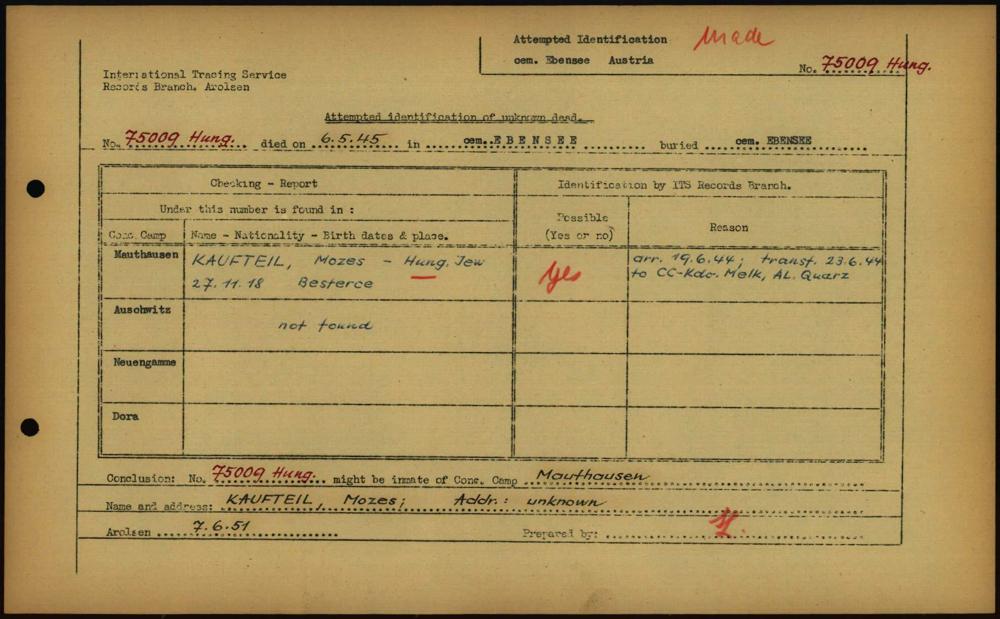 Attempted Identification made
cem. Ebensee Austria
No. 75009 Hung.
International Tracing Service
Records Branch, Arolsen
Attempted identification of unknown dead.
No. 75009 Hung. died on 6.5.45 in cem. E B E N S E E buried cem. EBENSEE
Checking - Report
Identification by ITS Records Branch.
Under this number is found in :
Possible
(Yes or no)
Reason
Conc. Camp
Name - Nationality - Birth dates & place.
Mauthausen
KAUFTEIL, Mozes - Hung. Jew
27.11.18 Besterce
yes
arr. 19.6.44; transf. 23.6.44
to CC-Kdo. Melk, AL. Quarz
Auschwitz
not found
Neuengamme
Dora
Conclusion: No. 75009 Hung. might be inmate of Conc. Camp Mauthausen
Name and address: KAUFTEIL, Mozes; Addr.: unknown
Arolsen 7.6.51
Prepared by: